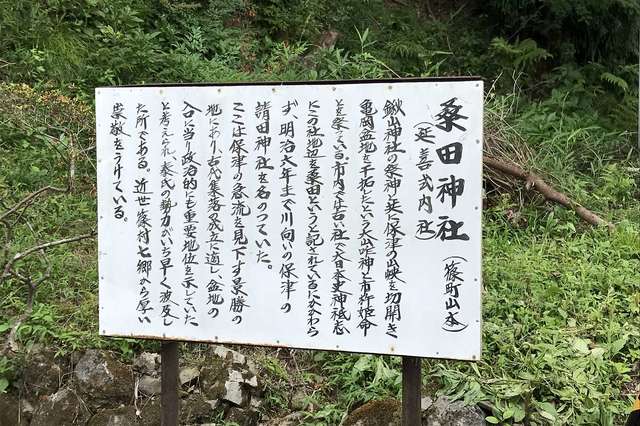 桑田神社（篠町山本）
（延喜式内社）
鍬山神社の祭神と共に保津の山峡を切開き
亀岡盆地を干拓したという大山咋神と市杵姫命
とを祭っている。市内では古い社で大日本史神祇志
にこの社地辺を桑田というと記されているにかかわら
ず、明治六年まで川向いの保津の
請田神社を名のっていた。
ここは保津の急流を見下す景勝の
地にあり、古代集落の成立に適し、盆地の
入口に当り政治的にも重要な地位を示していた
と考えられ、秦氏の勢力がいち早く波及し
た所である。近世篠村七郷から厚い
崇敬をうけている。